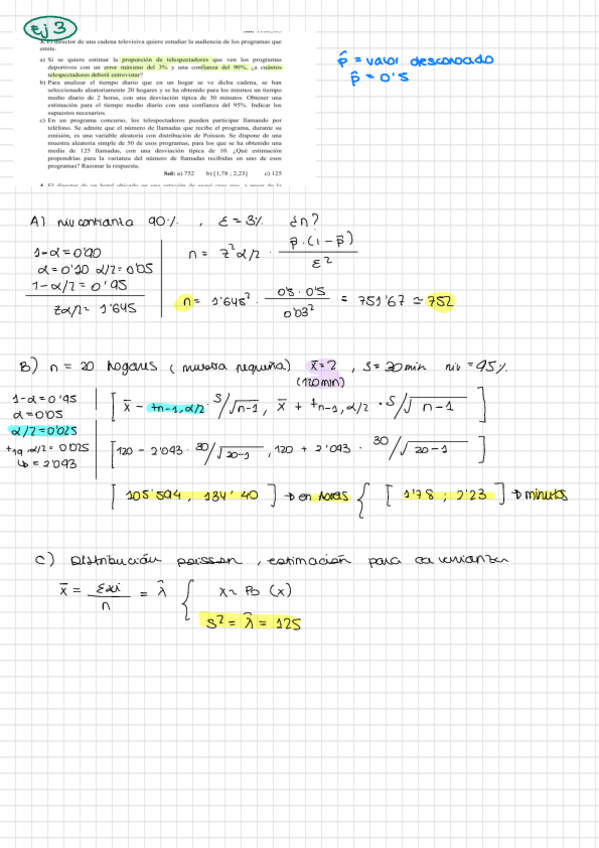 Ej 3
3. El director de una cadena televisiva quiere estudiar la audiencia de los programas que
emite.
a) Si se quiere estimar la proporción de telespectadores que ven los programas
deportivos con un error máximo del 3% y una confianza del 90%, ¿a cuántos
telespectadores deberá entrevistar?
b) Para analizar el tiempo diario que en un hogar se ve dicha cadena, se han
seleccionado aleatoriamente 20 hogares y se ha obtenido para los mismos un tiempo
medio diario de 2 horas, con una desviación típica de 30 minutos. Obtener una
estimación para el tiempo medio diario con una confianza del 95%. Indicar los
supuestos necesarios.
c) En un programa concurso, los telespectadores pueden participar llamando por
teléfono. Se admite que el número de llamadas que recibe el programa, durante su
emisión, es una variable aleatoria con distribución de Poisson. Se dispone de una
muestra aleatoria simple de 50 de esos programas, para los que se ha obtenido una
media de 125 llamadas, con una desviación típica de 10. ¿Qué estimación
propondrías para la varianza del número de llamadas recibidas en uno de esos
programas? Razonar la respuesta.
Sol: a) 752 b) [1,78 ; 2,23] c) 125
p̂ = valor desconocido
p̂ = 0'5
A) niv confianza 90% , ε = 3% ¿n?
1-α = 0'90
α = 0'10 α/2 = 0'05
1-α/2 = 0'95
zα/2 = 1'645
n = z² α/2 · p̂ · (1 - p̂) / ε²
n = 1'645² · 0'5 · 0'5 / 0'03² = 751'67 ≃ 752
B) n = 20 hogares (muestra pequeña) x̄ = 2 , s = 30 min niv = 95%
(120 min)
1-α = 0'95
α = 0'05
α/2 = 0'025
t19, α/2 = 0'025
↳ = 2'093
[ x̄ - tn-1, α/2 · s/√n-1 , x̄ + tn-1, α/2 · s/√n-1 ]
[ 120 - 2'093 · 30/√20-1 , 120 + 2'093 · 30/√20-1 ]
[ 105'594 , 134'40 ] → en horas { [ 1'78 ; 2'23 ] → minutos
C) Distribución poisson , estimación para la varianza
x̄ = Σxi / n = λ̂ { x ~ Po (λ)
s² = λ̂ = 125